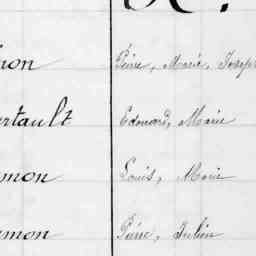 Pierre, Marie, Joseph
ertault Edouard, Marie
mon Louis, Marie
mon Pierre, Julien